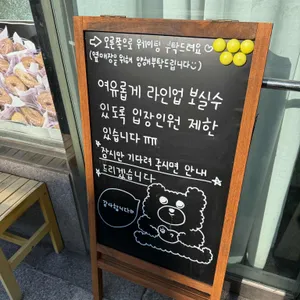 ⇨ 오른쪽으로 웨이팅 부탁드려요
(옆매장을 위해 양해부탁드립니다)
여유롭게 라인업 보실수
있도록 입장인원 제한
있습니다 ㅠㅠ
잠시만 기다려 주시면 안내
드리겠습니다
감사합니다